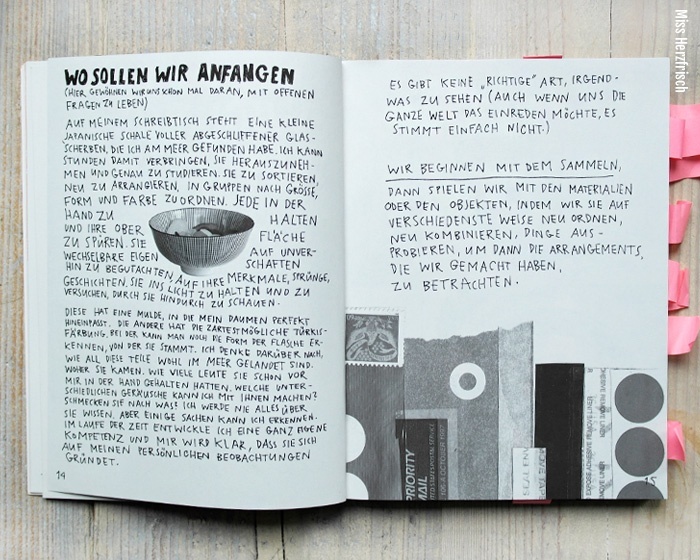 WO SOLLEN WIR ANFANGEN
(HIER GEWÖHNEN WIR UNS SCHON MAL DARAN, MIT OFFENEN
FRAGEN ZU LEBEN)
AUF MEINEM SCHREIBTISCH STEHT EINE KLEINE
JAPANISCHE SCHALE VOLLER ABGESCHLIFFENER GLAS-
SCHERBEN, DIE ICH AM MEER GEFUNDEN HABE. ICH KANN
STUNDEN DAMIT VERBRINGEN, SIE HERAUSZUNEH-
MEN UND GENAU ZU STUDIEREN. SIE ZU SORTIEREN,
NEU ZU ARRANGIEREN, IN GRUPPEN NACH GRÖSSE,
FORM UND FARBE ZU ORDNEN. JEDE IN DER
HAND ZU HALTEN
UND IHRE OBER FLÄCHE
ZU SPÜREN. SIE AUF UNVER-
WECHSELBARE EIGEN SCHAFTEN
HIN ZU BEGUTACHTEN, AUF IHRE MERKMALE, SPRÜNGE,
GESCHICHTEN. SIE INS LICHT ZU HALTEN UND ZU
VERSUCHEN, DURCH SIE HINDURCH ZU SCHAUEN.
DIESE HAT EINE MULDE, IN DIE MEIN DAUMEN PERFEKT
HINEINPASST. DIE ANDERE HAT DIE ZARTESTMÖGLICHE TÜRKIS-
FÄRBUNG. BEI DER KANN MAN NOCH DIE FORM DER FLASCHE ER-
KENNEN, VON DER SIE STAMMT. ICH DENKE DARÜBER NACH,
WIE ALL DIESE TEILE WOHL IM MEER GELANDET SIND.
WOHER SIE KAMEN. WIE VIELE LEUTE SIE SCHON VOR
MIR IN DER HAND GEHALTEN HATTEN. WELCHE UNTER-
SCHIEDLICHEN GERÄUSCHE KANN ICH MIT IHNEN MACHEN?
SCHMECKEN SIE NACH WAS? ICH WERDE NIE ALLES ÜBER
SIE WISSEN. ABER EINIGE SACHEN KANN ICH ERKENNEN.
IM LAUFE DER ZEIT ENTWICKLE ICH EINE GANZ EIGENE
KOMPETENZ UND MIR WIRD KLAR, DASS SIE SICH
AUF MEINEN PERSÖNLICHEN BEOBACHTUNGEN
GRÜNDET.
14
ES GIBT KEINE „RICHTIGE" ART, IRGEND-
WAS ZU SEHEN (AUCH WENN UNS DIE
GANZE WELT DAS EINREDEN MÖCHTE, ES
STIMMT EINFACH NICHT.)
WIR BEGINNEN MIT DEM SAMMELN,
DANN SPIELEN WIR MIT DEN MATERIALIEN
ODER DEN OBJEKTEN, INDEM WIR SIE AUF
VERSCHIEDENSTE WEISE NEU ORDNEN,
NEU KOMBINIEREN, DINGE AUS-
PROBIEREN, UM DANN DIE ARRANGEMENTS,
DIE WIR GEMACHT HABEN,
ZU BETRACHTEN.
PRIORITY
MAIL
SEAL ENV
EXPOSE ADHESIVE REMOVE LINER
15
Miss Herzfrisch